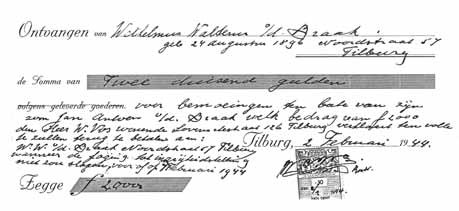 Ontvangen van Wilhelmus Walterus v/d. Braak.
geb 24 augustus 1896 Noordstraat 57
Tilburg
de Somma van Twee duizend gulden
volgens geleverde goederen. voor bemoeiingen ten bate van zijn
zoon Jan Antoon v/d. Braak welk bedrag van f 2000
den Heer W. Vos wonende Leuvenstraat 126 Tilburg, ten volle
te zullen terug te betalen aan
W. W. v/d Braak Noordstraat 57 Tilburg
wanneer de poging tot invrijheidstelling
niet zou slagen, voor Februari 1944
Tilburg, 2 Februari 1944.
Zegge f 2000,-